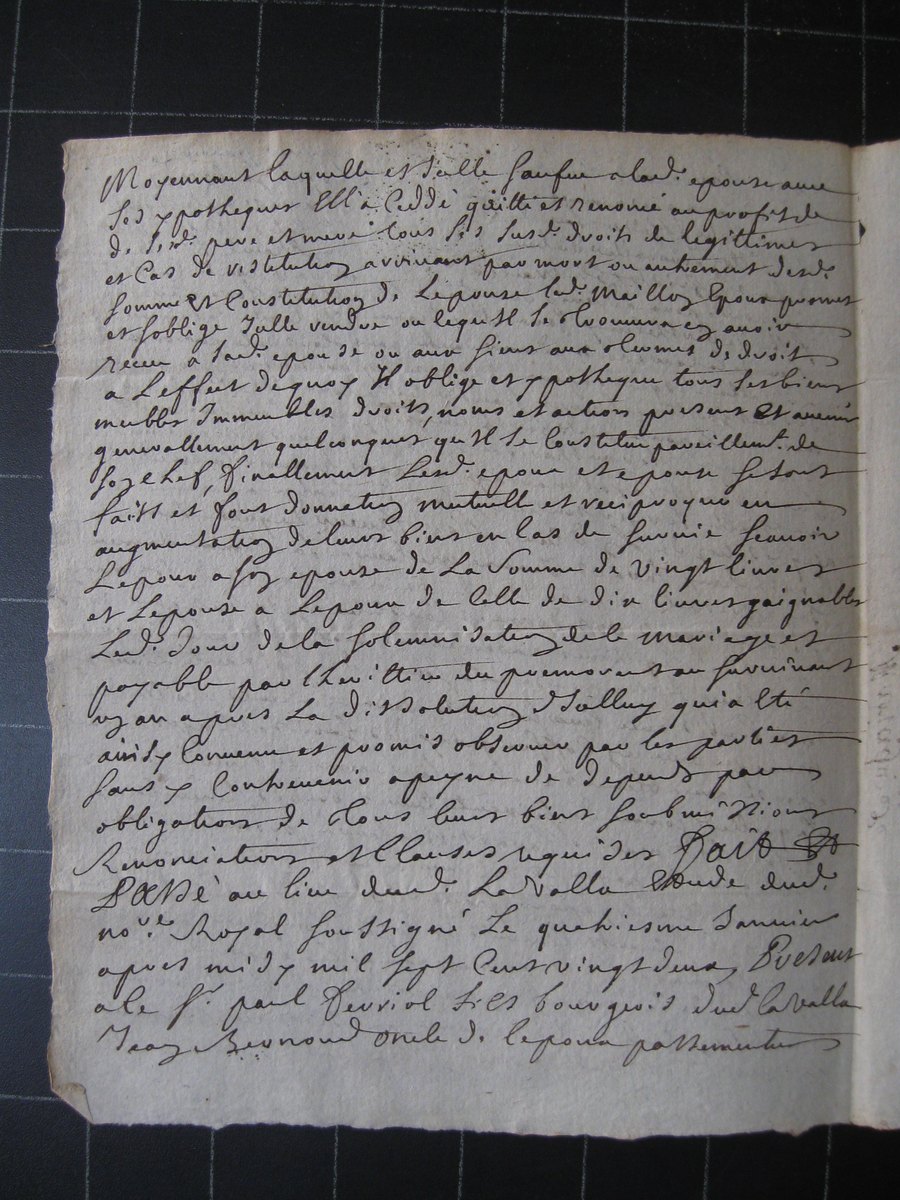 Moyennant laquelle et Icelle sauf en a lad. epouse avec
ses ypotheques Elle a Ceddé quitté et renoncé au profit de
de sesd. pere et mere tous ses susd. droits de legittimes
et Cas de restitution arrivant par mort ou autrement desd.
somme et Constitution de Lepouse led. Mailloz Epoux promet
et soblige Icelle rendre ou lequil se trouvera en avoir
receu a lad. epouse ou aux siens aux termes de droit
a Leffect dequoy Il oblige et ypotheque tous ses biens
meubles Immeubles droits, noms et actions presents et avenir
generallement quelconques qu'Il se Constitue pareillemt. de
son Chef, finallement Lesd. epoux et epouse se sont
faits et font donnation mutuelle et reciproque en
augmentation de leurs biens en Cas de survie scavoir
Lepoux a son epouse de La Somme de vingt livres
et Lepouse a Lepoux de Celle de dix livres gaignables
Led. Jour de la solemnisation dele mariage et
payable par lherittier du premorant au survivant
un an apres La dissolution d'Icelluy qui a Eté
ainsy Convenu et promis observer par les parties
sans y Contrevenir a peyne de depends par
obligations de tous leurs biens soubmissions
Renonciations et Clauses requises Fait Et
Passé au lieu dud. Lavalla Etude dud.
nore. Royal soussigné Le quatriesme Janvier
apres midy mil sept Cent vingt deux, Present
a le Sr. paul Fevriol fils bourgeois dud. lavalla
Jean Bernoud oncle de lepoux passementier